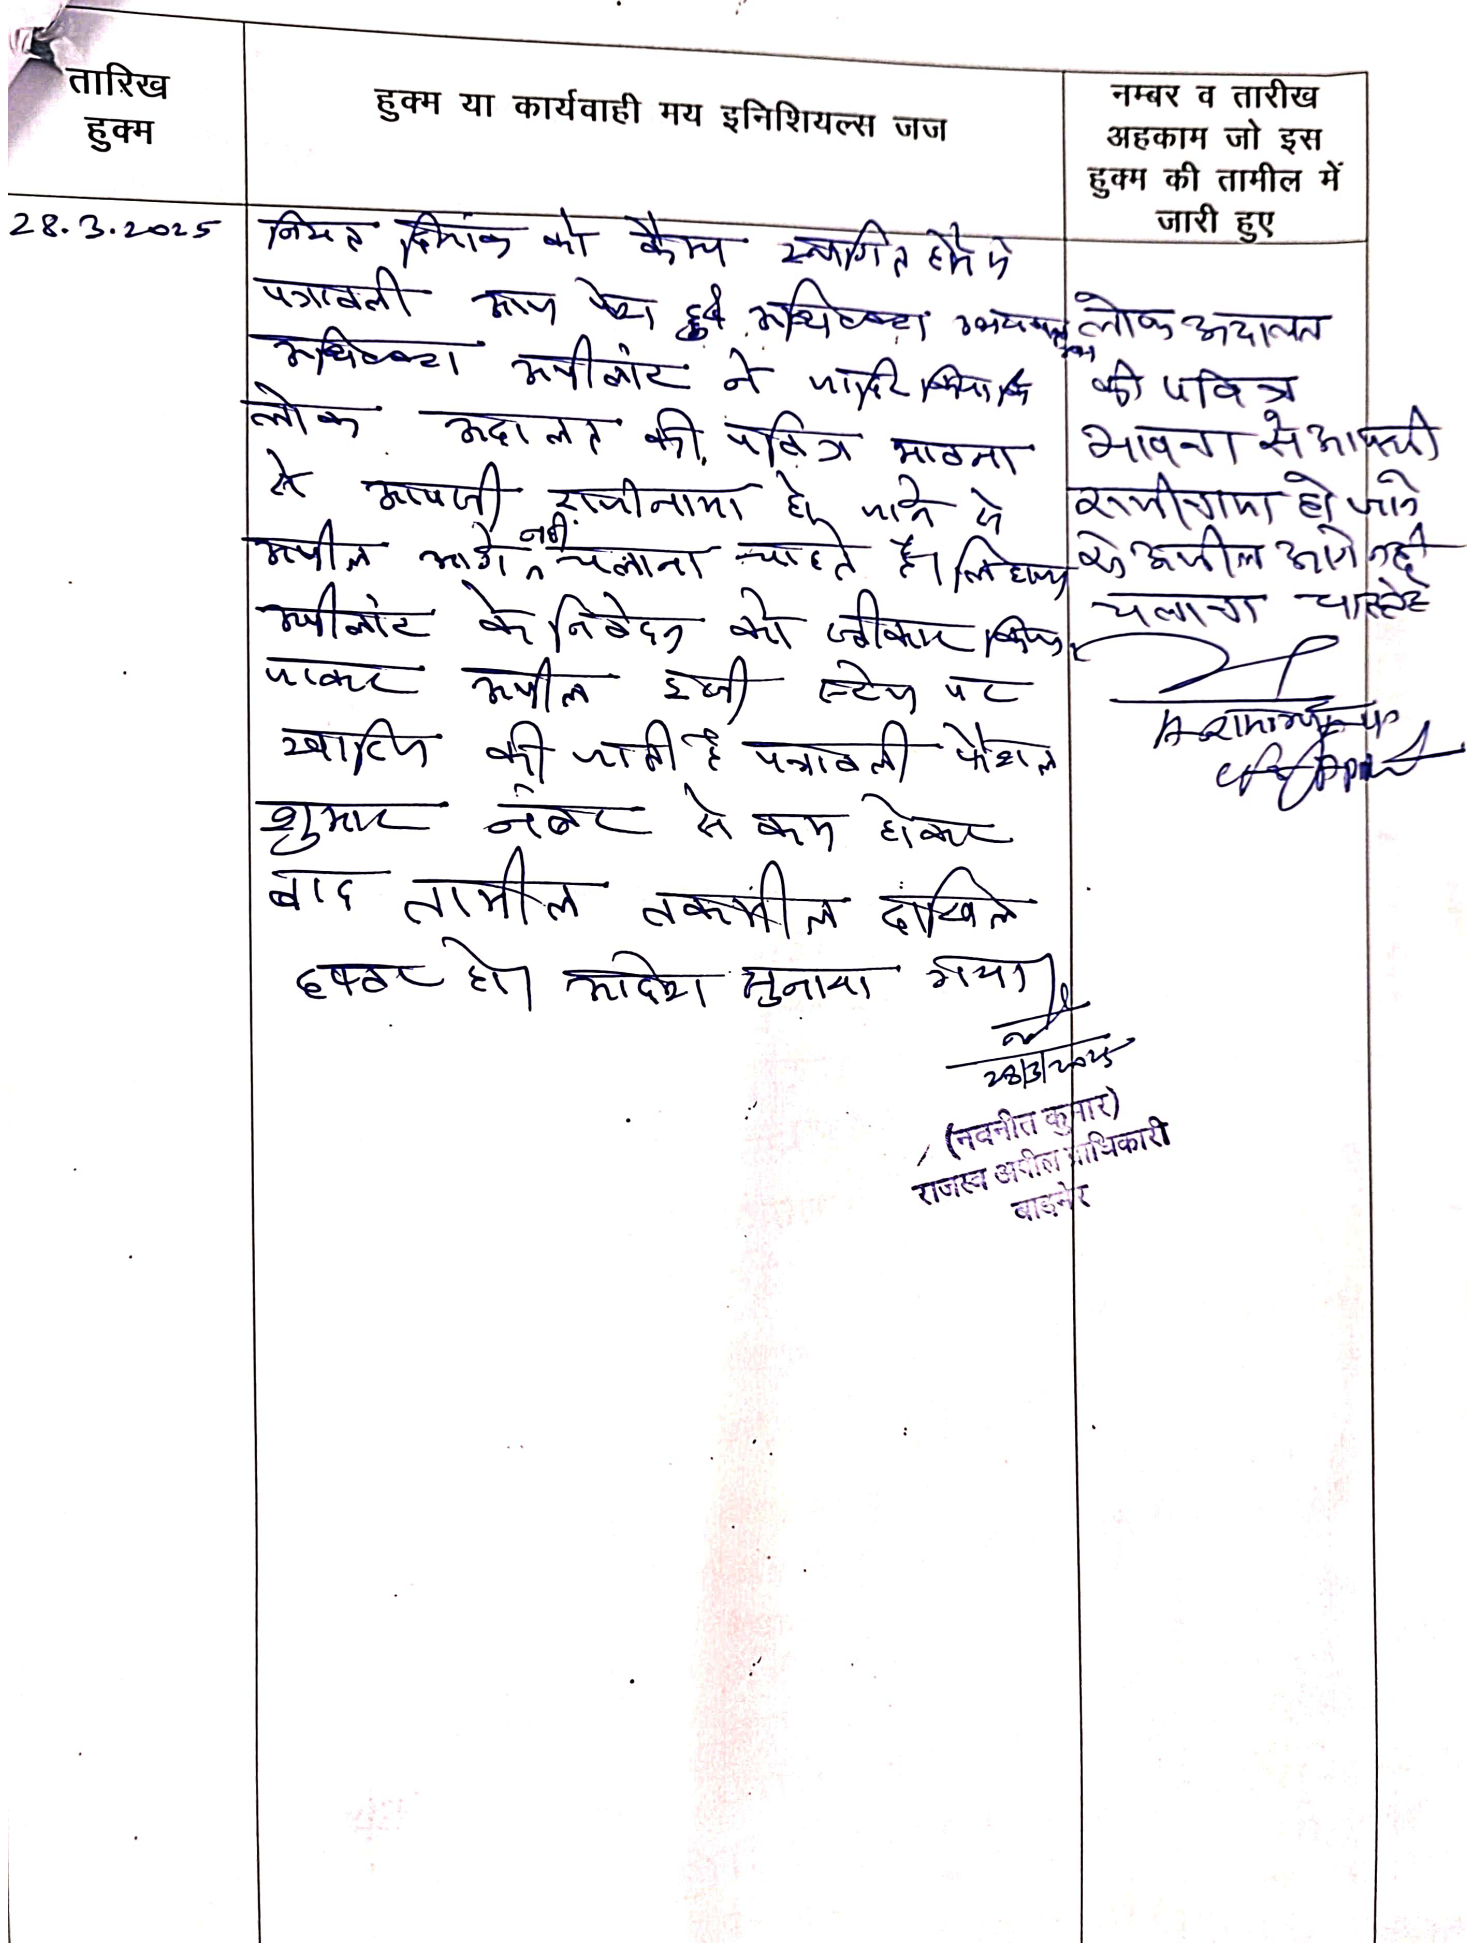 तारिख
हुक्म
हुक्म या कार्यवाही मय इनिशियल्स जज
नम्बर व तारीख
अहकाम जो इस
हुक्म की तामील में
जारी हुए
28.3.2025
नियत दिनांक को कैम्प स्थगित होने से
पत्रावली आज पेश हुई अधिवक्ता
अधिवक्ता अपीलांट ने जाहिर किया कि
लोक अदालत की पवित्र भावना
से आपसी राजीनामा हो जाने से
अपील आगे नहीं चलाना चाहते है। लिहाजा
अपीलांट के निवेदन को स्वीकार किया
जाकर अपील इसी स्टेज पर
खारिज की जाती है पत्रावली फैशल
शुमार नंबर से कम होकर
बाद तामील तकमील दाखिल
दफ्तर हो। आदेश सुनाया गया।
28/3/2025
(नवनीत कुमार)
राजस्व अपील प्राधिकारी
बाड़मेर
लोक अदालत
की पवित्र
भावना से आपसी
राजीनामा हो जाने
से अपील आगे नहीं
चलाना चाहते है